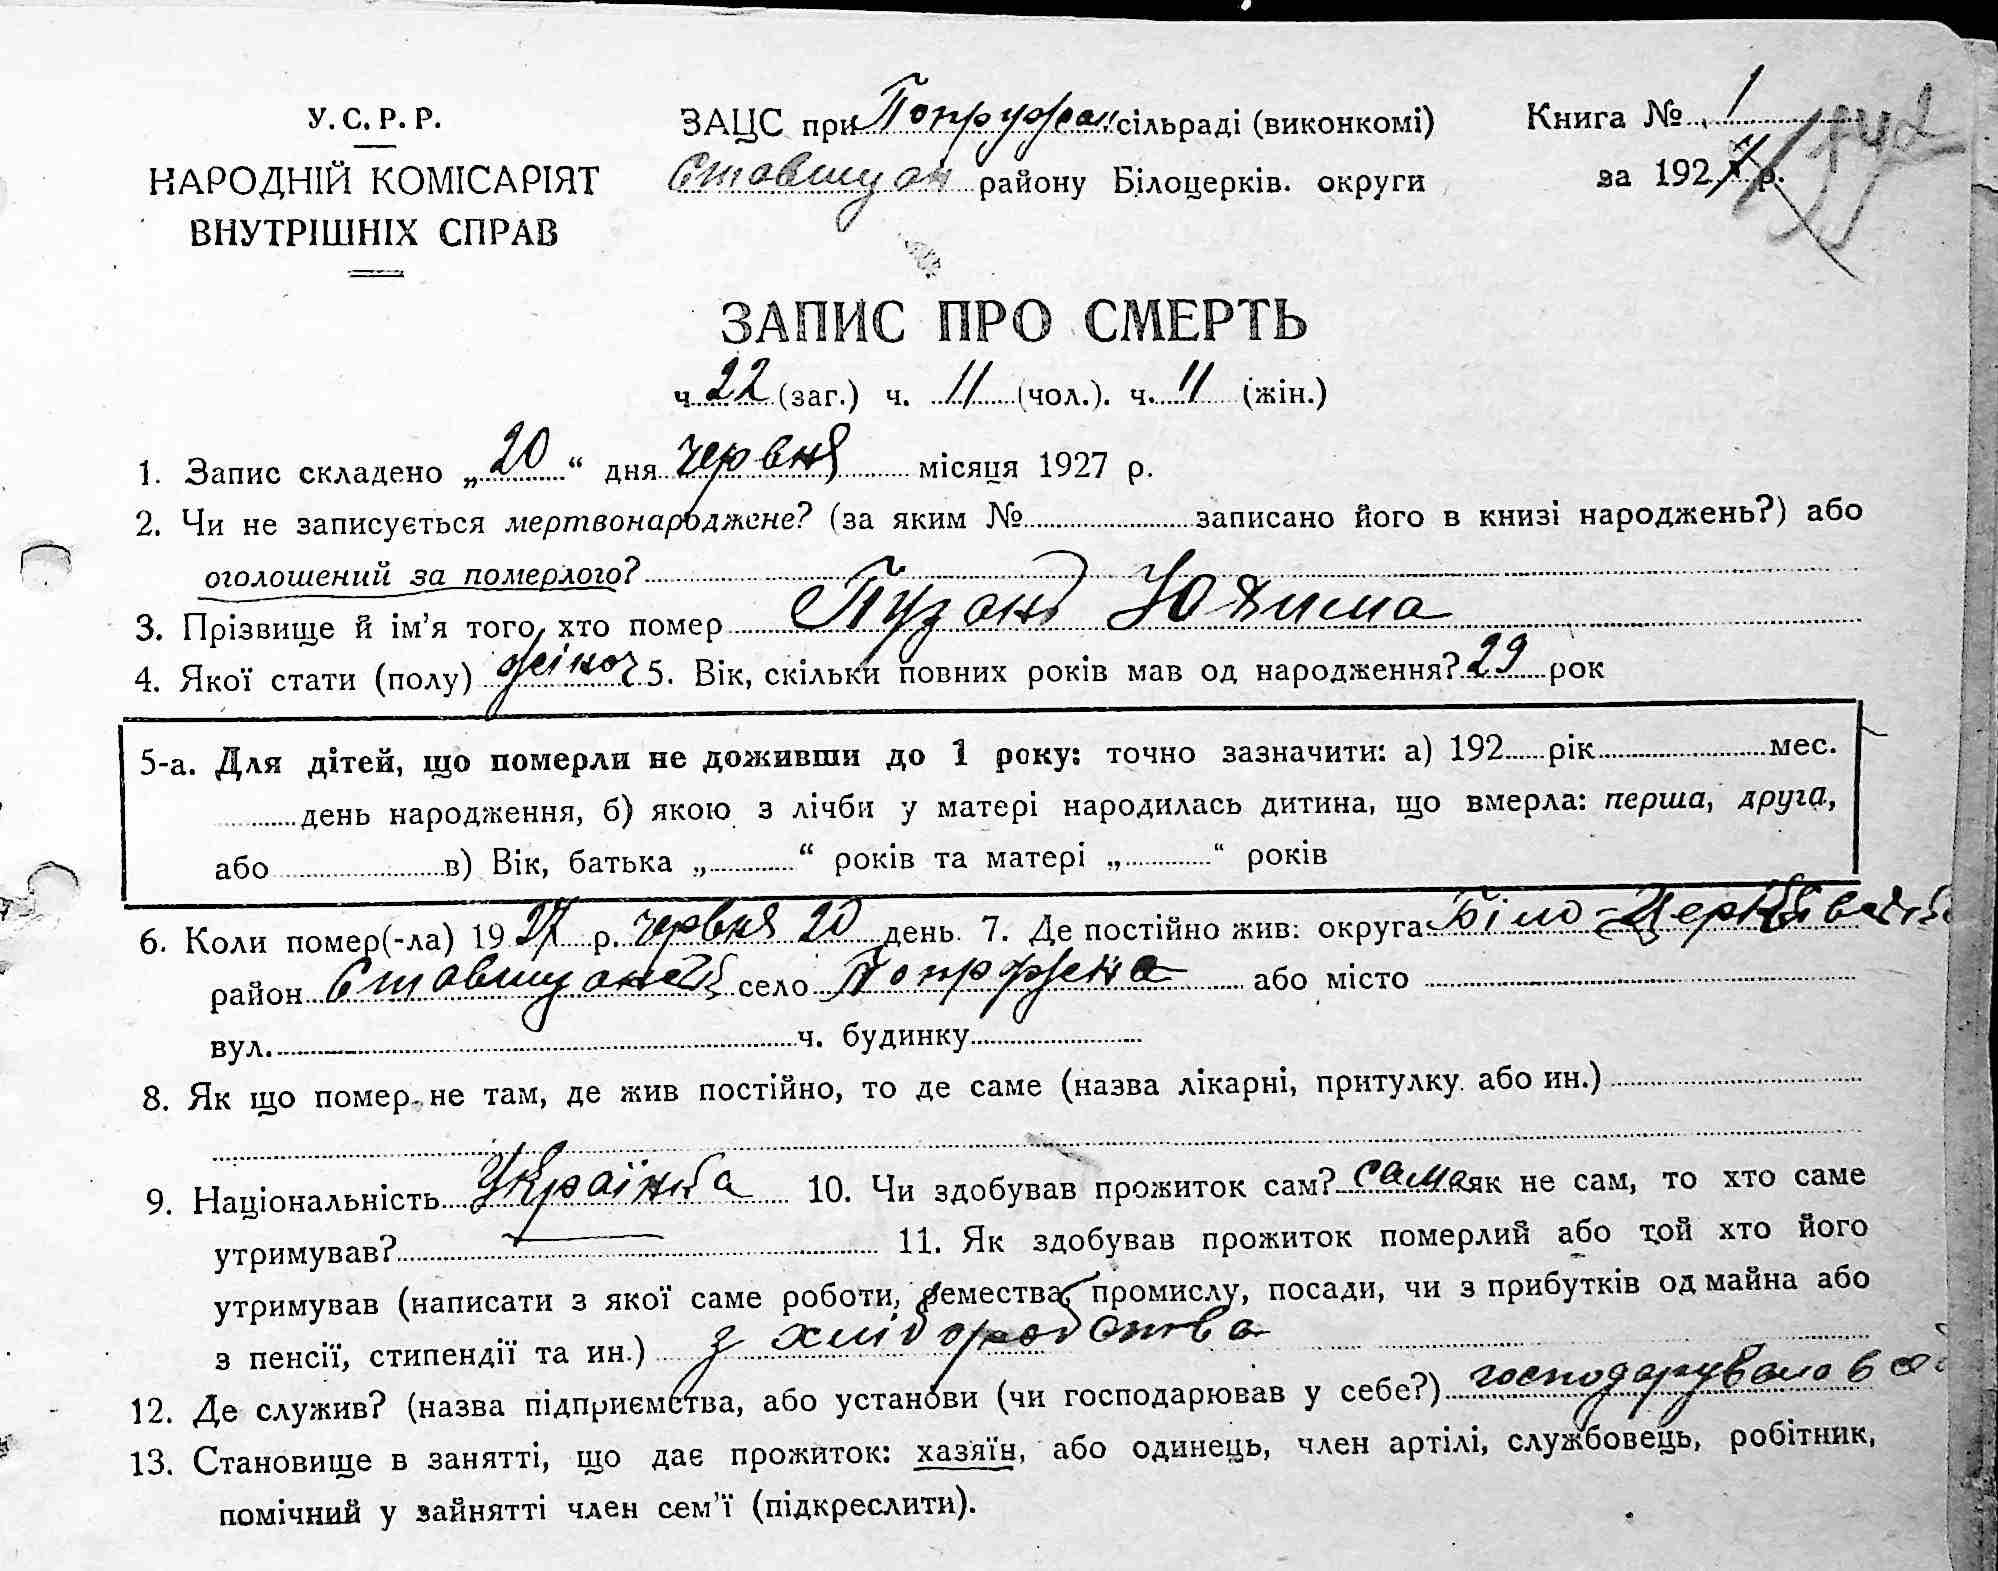 У.С.Р.Р.
НАРОДНІЙ КОМІСАРІЯТ
ВНУТРІШНІХ СПРАВ
ЗАЦС при Попружан сільраді (виконкомі)
Ставищан району Білоцерків. округи
Книга № 1
за 1927 р.
ЗАПИС ПРО СМЕРТЬ
ч. 22 (заг.) ч. 11 (чол.). ч. 11 (жін.)
1. Запис складено „20“ дня червня місяця 1927 р.
2. Чи не записується мертвонароджене? (за яким № записано його в книзі народжень?) або
оголошений за померлого?
3. Прізвище й ім'я того, хто помер Пузанъ Юхима
4. Якої стати (полу) жіноч 5. Вік, скільки повних років мав од народження? 29 рок
5-а. Для дітей, що померли не доживши до 1 року: точно зазначити: а) 192 рік мес.
день народження, б) якою з лічби у матері народилась дитина, що вмерла: перша, друга,
або в) Вік, батька „ “ років та матері „ “ років
6. Коли помер(-ла) 1927 р. червня 20 день. 7. Де постійно жив: округа Біло-Церківській
район Ставищанськ село Попружна або місто
вул. ч. будинку
8. Як що помер не там, де жив постійно, то де саме (назва лікарні, притулку або ин.)
9. Національність Українка 10. Чи здобував прожиток сам? сама як не сам, то хто саме
утримував? 11. Як здобував прожиток померлий або той хто його
утримував (написати з якої саме роботи, ремества, промислу, посади, чи з прибутків од майна або
з пенсії, стипендії та ин.) з хліборобства
12. Де служив? (назва підприємства, або установи (чи господарював у себе?) господарувала в
13. Становище в занятті, що дає прожиток: хазяїн, або одинець, член артілі, службовець, робітник,
помічний у зайнятті член сем'ї (підкреслити).